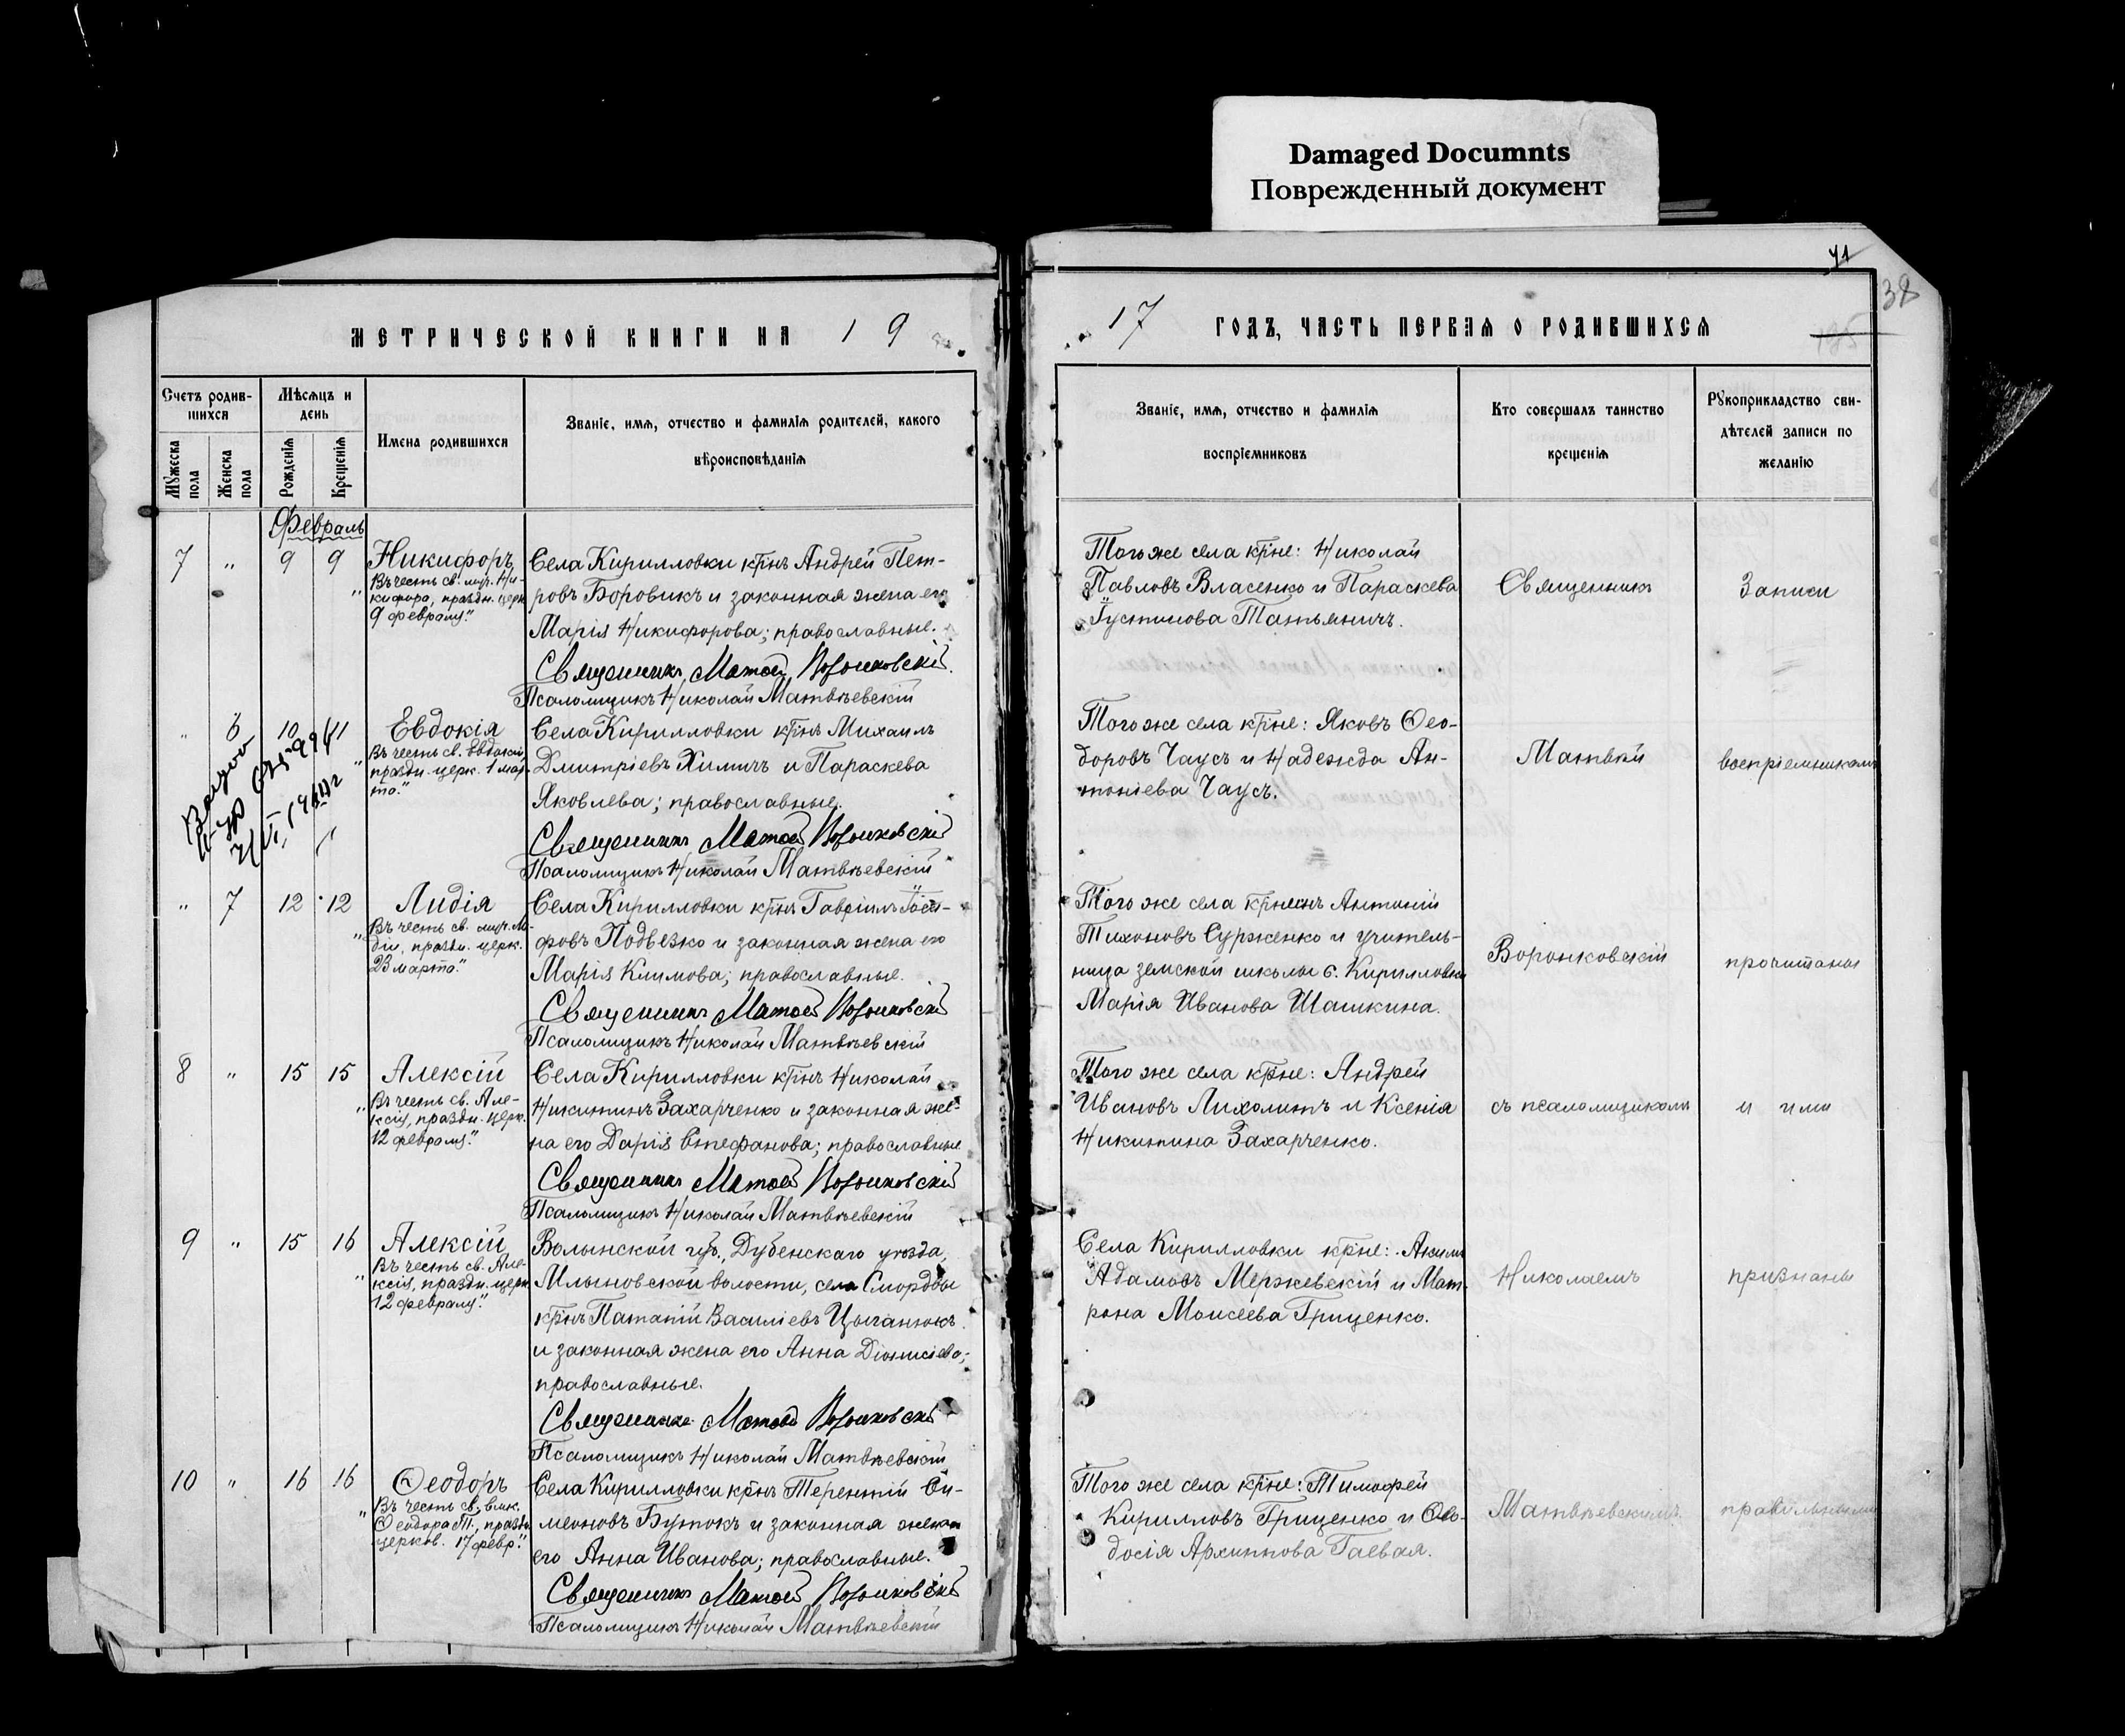 Damaged Documnts
Поврежденный документ
41
38
МЕТРИЧЕСКОЙ КНИГИ НА 1 9
17 ГОДЪ, ЧАСТЬ ПЕРВАЯ О РОДИВШИХСЯ
Счетъ родив-
шихся
Мѣсяцъ и
день
Имена родившихся
Званіе, имя, отчество и фамилія родителей, какого
вѣроисповѣданія
Мужеска
пола
Женска
пола
Рожденія
Крещенія
Званіе, имя, отчество и фамилія
воспріемниковъ
Кто совершалъ таинство
крещенія
Рукоприкладство сви-
дѣтелей записи по
желанію
Февраль
7 " 9 9
Никифоръ
"Въ честь св. муч. Ни-
кифора, праздн. церк.
9 февраля."
Села Кирилловки кр̃нъ Андрей Пет-
ровъ Боровикъ и законная жена его
Марія Никифорова; православные.
Священникъ Матѳей Воронковскій
Псаломщикъ Николай Матвѣевскій
Того же села кр̃не: Николай
Павловъ Власенко и Параскева
Іустинова Татьяничъ.
Священникъ
Записи
" 6 10 11
Евдокія
"Въ честь св. Евдокіи,
праздн. церк. 1 мар-
та."
Села Кирилловки кр̃нъ Михаилъ
Дмитріевъ Химичъ и Параскева
Яковлева; православные.
Священникъ Матѳей Воронковскій
Псаломщикъ Николай Матвѣевскій
Того же села кр̃не: Яковъ Ѳео-
доровъ Чаусъ и Надежда Ан-
тоніева Чаусъ.
Матвѣй
воспріемникамъ
" 7 12 12
Лидія
"Въ честь св. муч. Ли-
діи, праздн. церк.
23 марта."
Села Кирилловки кр̃нъ Гавріилъ Іоси-
фовъ Подвезко и законная жена его
Марія Климова; православные.
Священникъ Матѳей Воронковскій
Псаломщикъ Николай Матвѣевскій
Того же села Антоній
Тихоновъ Сурженко и учитель-
ница земской школы с. Кирилловки
Марія Иванова Шашкина.
Воронковскій
прочитаны
8 " 15 15
Алексій
"Въ честь св. Але-
ксія, праздн. церк.
12 февраля."
Села Кирилловки кр̃нъ Николай
Никитинъ Захарченко и законная же-
на его Дарія Стефанова; православные
Священникъ Матѳей Воронковскій
Псаломщикъ Николай Матвѣевскій
Того же села кр̃не: Андрей
Ивановъ Лихолитъ и Ксенія
Никитина Захарченко.
съ псаломщикомъ
и ими
9 " 15 16
Алексій
"Въ честь св. Але-
ксія, праздн. церк.
12 февраля."
Волынской губ., Дубенскаго уѣзда,
Млыновской волости, села Смордвы
кр̃нъ Патапій Василіевъ Цыганюкъ
и законная жена его Анна Діонисіева;
православные.
Священникъ Матѳей Воронковскій
Псаломщикъ Николай Матвѣевскій
Села Кирилловки кр̃не: Акимъ
Адамовъ Мержевскій и Мат-
рона Моисеева Гриценко.
Николаемъ
признаны
10 " 16 16
Ѳеодоръ
"Въ честь св. вмк.
Ѳеодора Т., праздн.
церков. 17 февр."
Села Кирилловки кр̃нъ Терентій Си-
меоновъ Бутокъ и законная жена
его Анна Иванова; православные.
Священникъ Матѳей Воронковскій
Псаломщикъ Николай Матвѣевскій
Того же села кр̃не: Тимоѳей
Кирилловъ Гриценко и Ѳео-
досія Архиппова Гаевая.
Матвѣевскимъ.
правильными